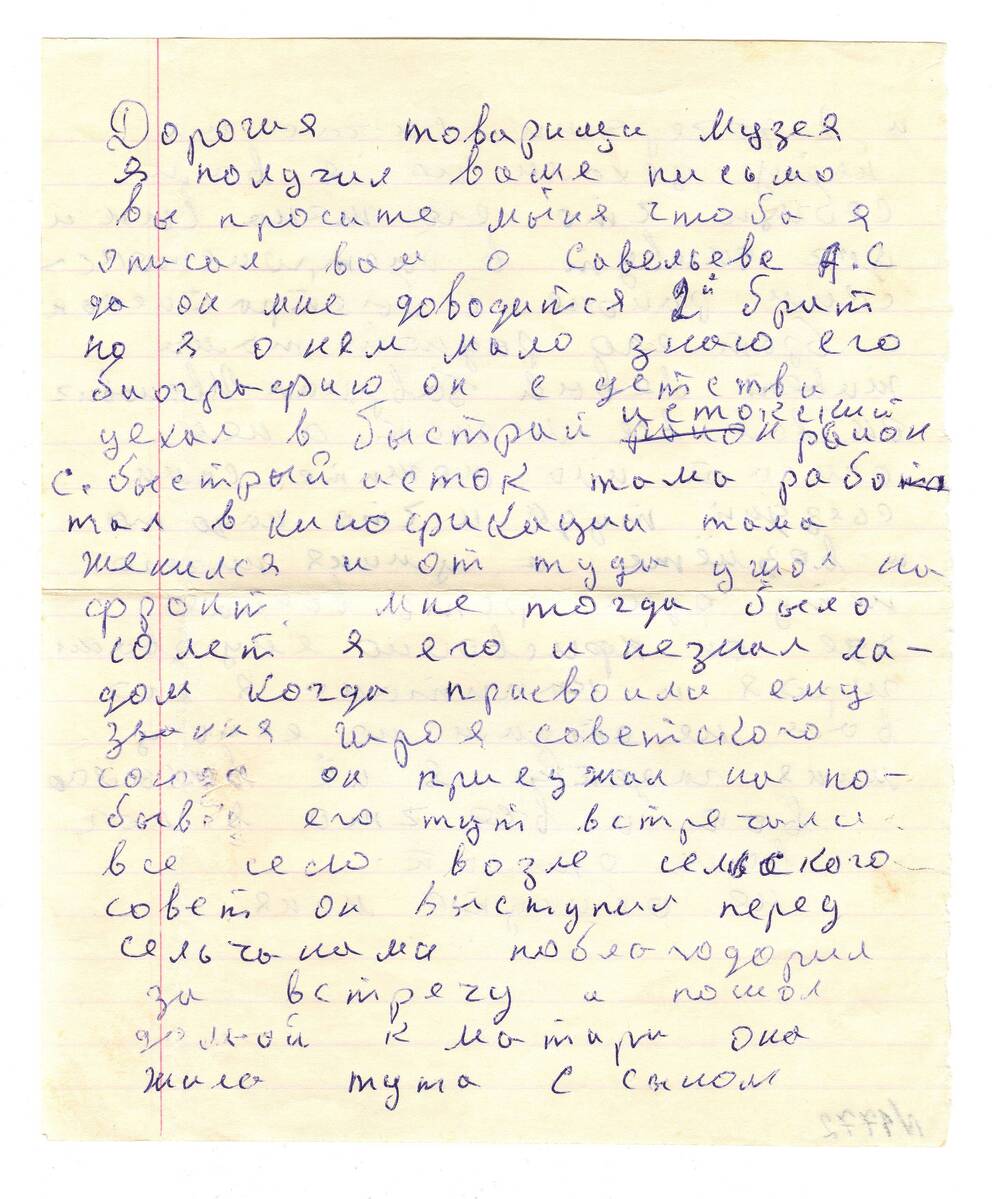 Дорогия товарищи музея
я получил ваше письмо
вы просите мыня чтоба я
описал вам о Савельеве А.С
да он мне доводится 2й брат
но я о нем мало знаю его
биогрьфию он с детства
уехал в быстрай истокский район
с. быстрый исток тама рабо
тал в кинофикации тама
женился и от туда ушол на
фронт. мне тогда было
10 лет я его и незнал ла-
дом когда присвоили ему
звания героя советского
союза он приезжал на по-
бывк его тут встречали
все село возле сельского
совет он выступил перед
сельчанами поблагодорил
за встречу и пошол
домой к матири она
жила тута с сыном